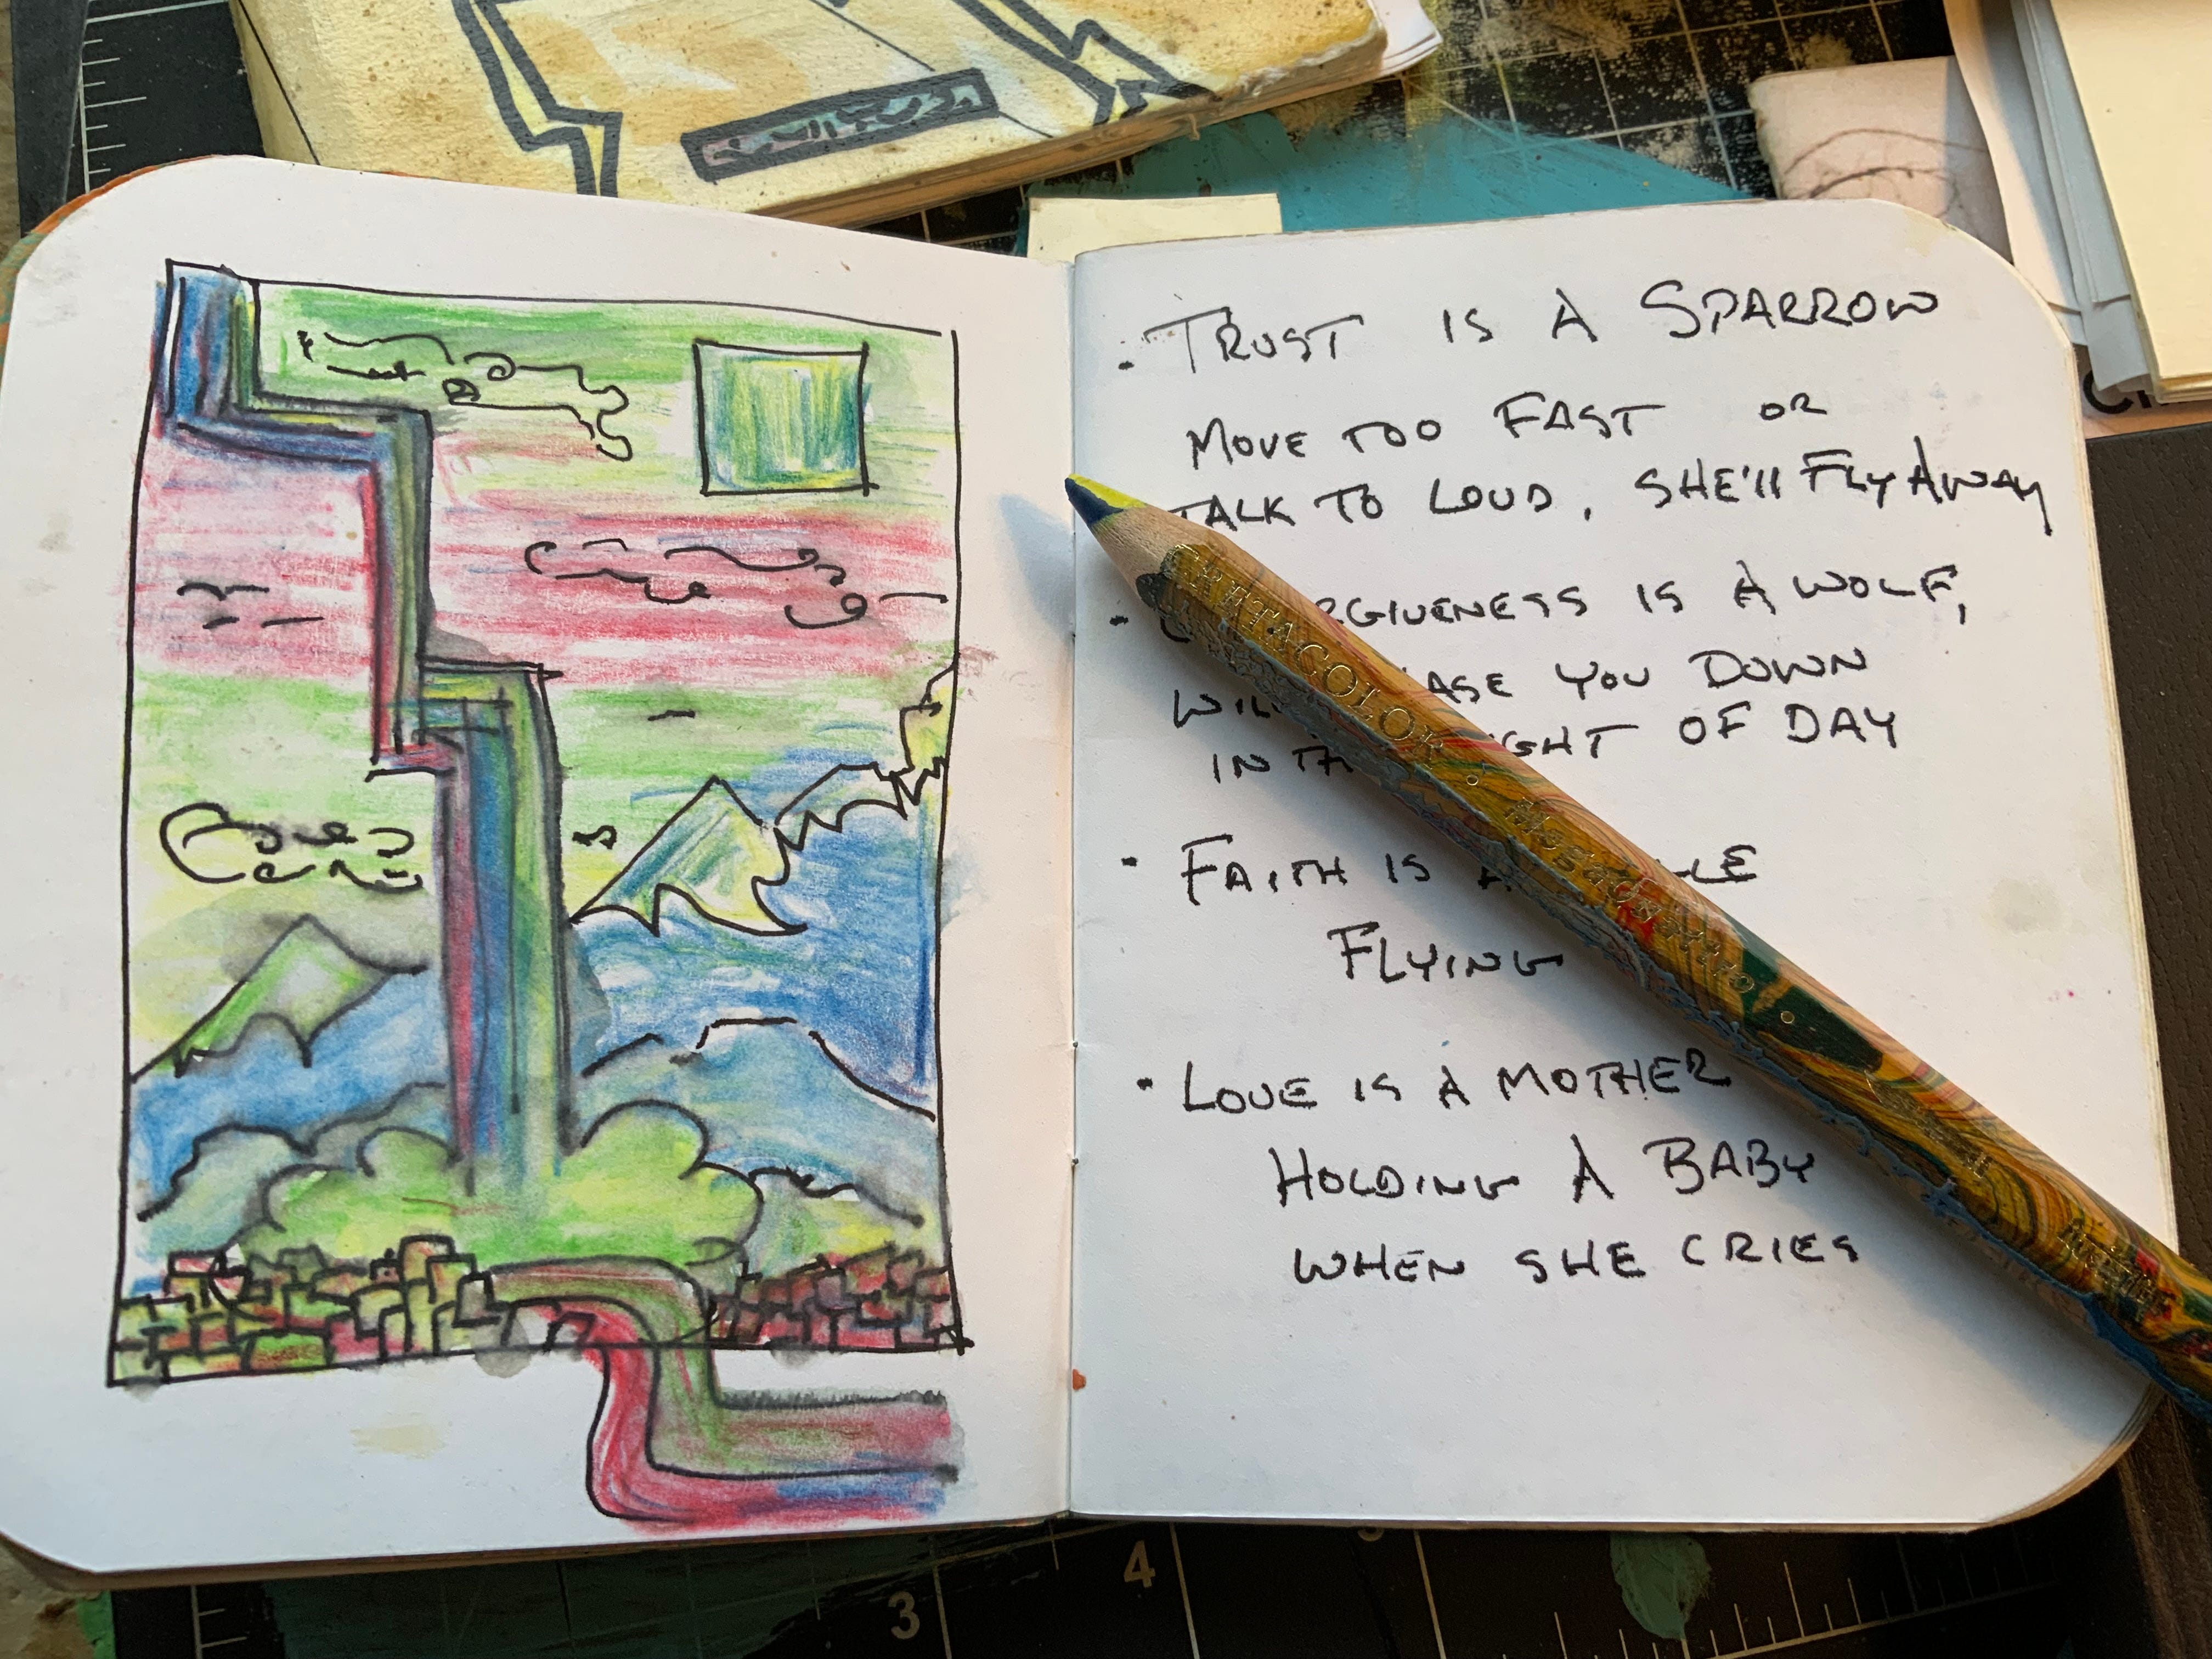 · TRUST IS A SPARROW
MOVE TOO FAST OR
TALK TO LOUD, SHE'll FLY AWAY
· RGIVENESS IS A WOLF,
WIL ASE YOU DOWN
IN TH IGHT OF DAY
· FAITH IS A LE
FLYING
· LOVE IS A MOTHER
HOLDING A BABY
WHEN SHE CRIES
CRETACOLOR · Megacolor
3 4 5